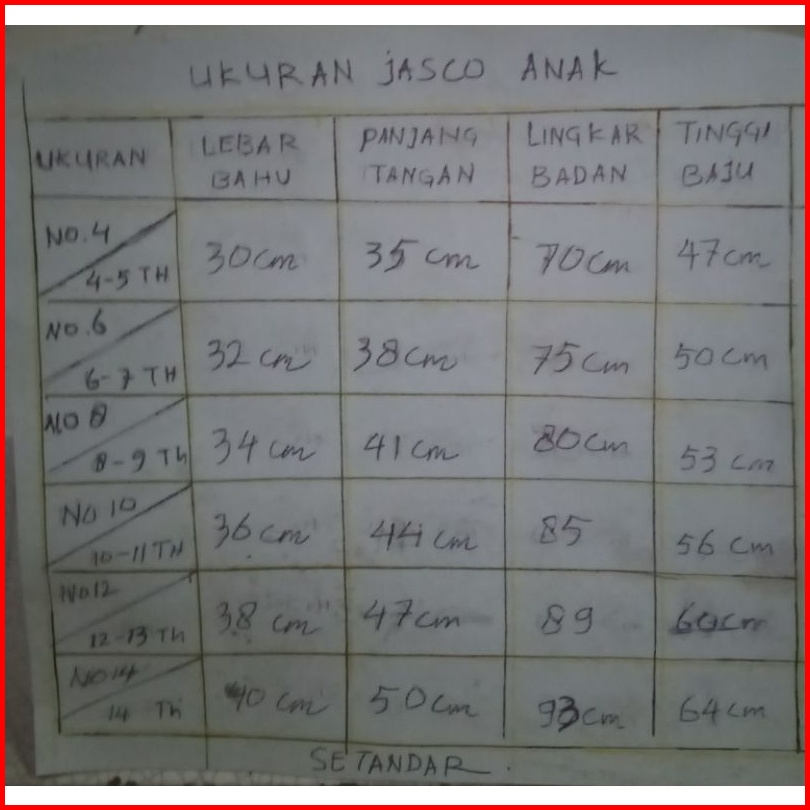 UKURAN JASCO ANAK
UKURAN LEBAR BAHU PANJANG TANGAN LINGKAR BADAN TINGGI BAJU
NO.4 4-5 TH 30cm 35 cm 70cm 47cm
NO.6 6-7 TH 32 cm 38cm 75cm 50cm
NO 8 8-9 Th 34 cm 41cm 80cm 53 cm
NO 10 10-11 TH 36cm 44cm 85 56 cm
NO12 12-13 Th 38 cm 47cm 89 60cm
NO14 14 Th 40 cm 50cm 93cm 64cm
SETANDAR.